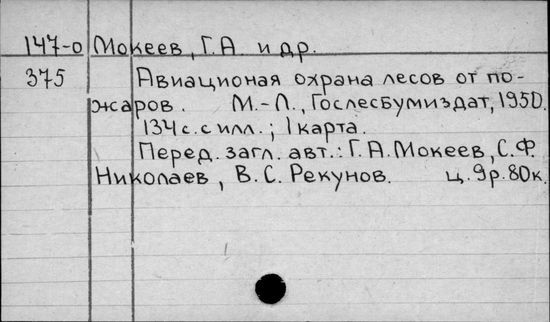 147-о Мокеев, Г.А. и др.
375 Авиационая охрана лесов от по-
жаров. М.-Л., Гослесбумиздат, 1950.
134 с. с илл.; 1 карта.
Перед. загл. авт.: Г.А.Мокеев, С.Ф.
Николаев, В.С. Рекунов. ц. 9р. 80к.